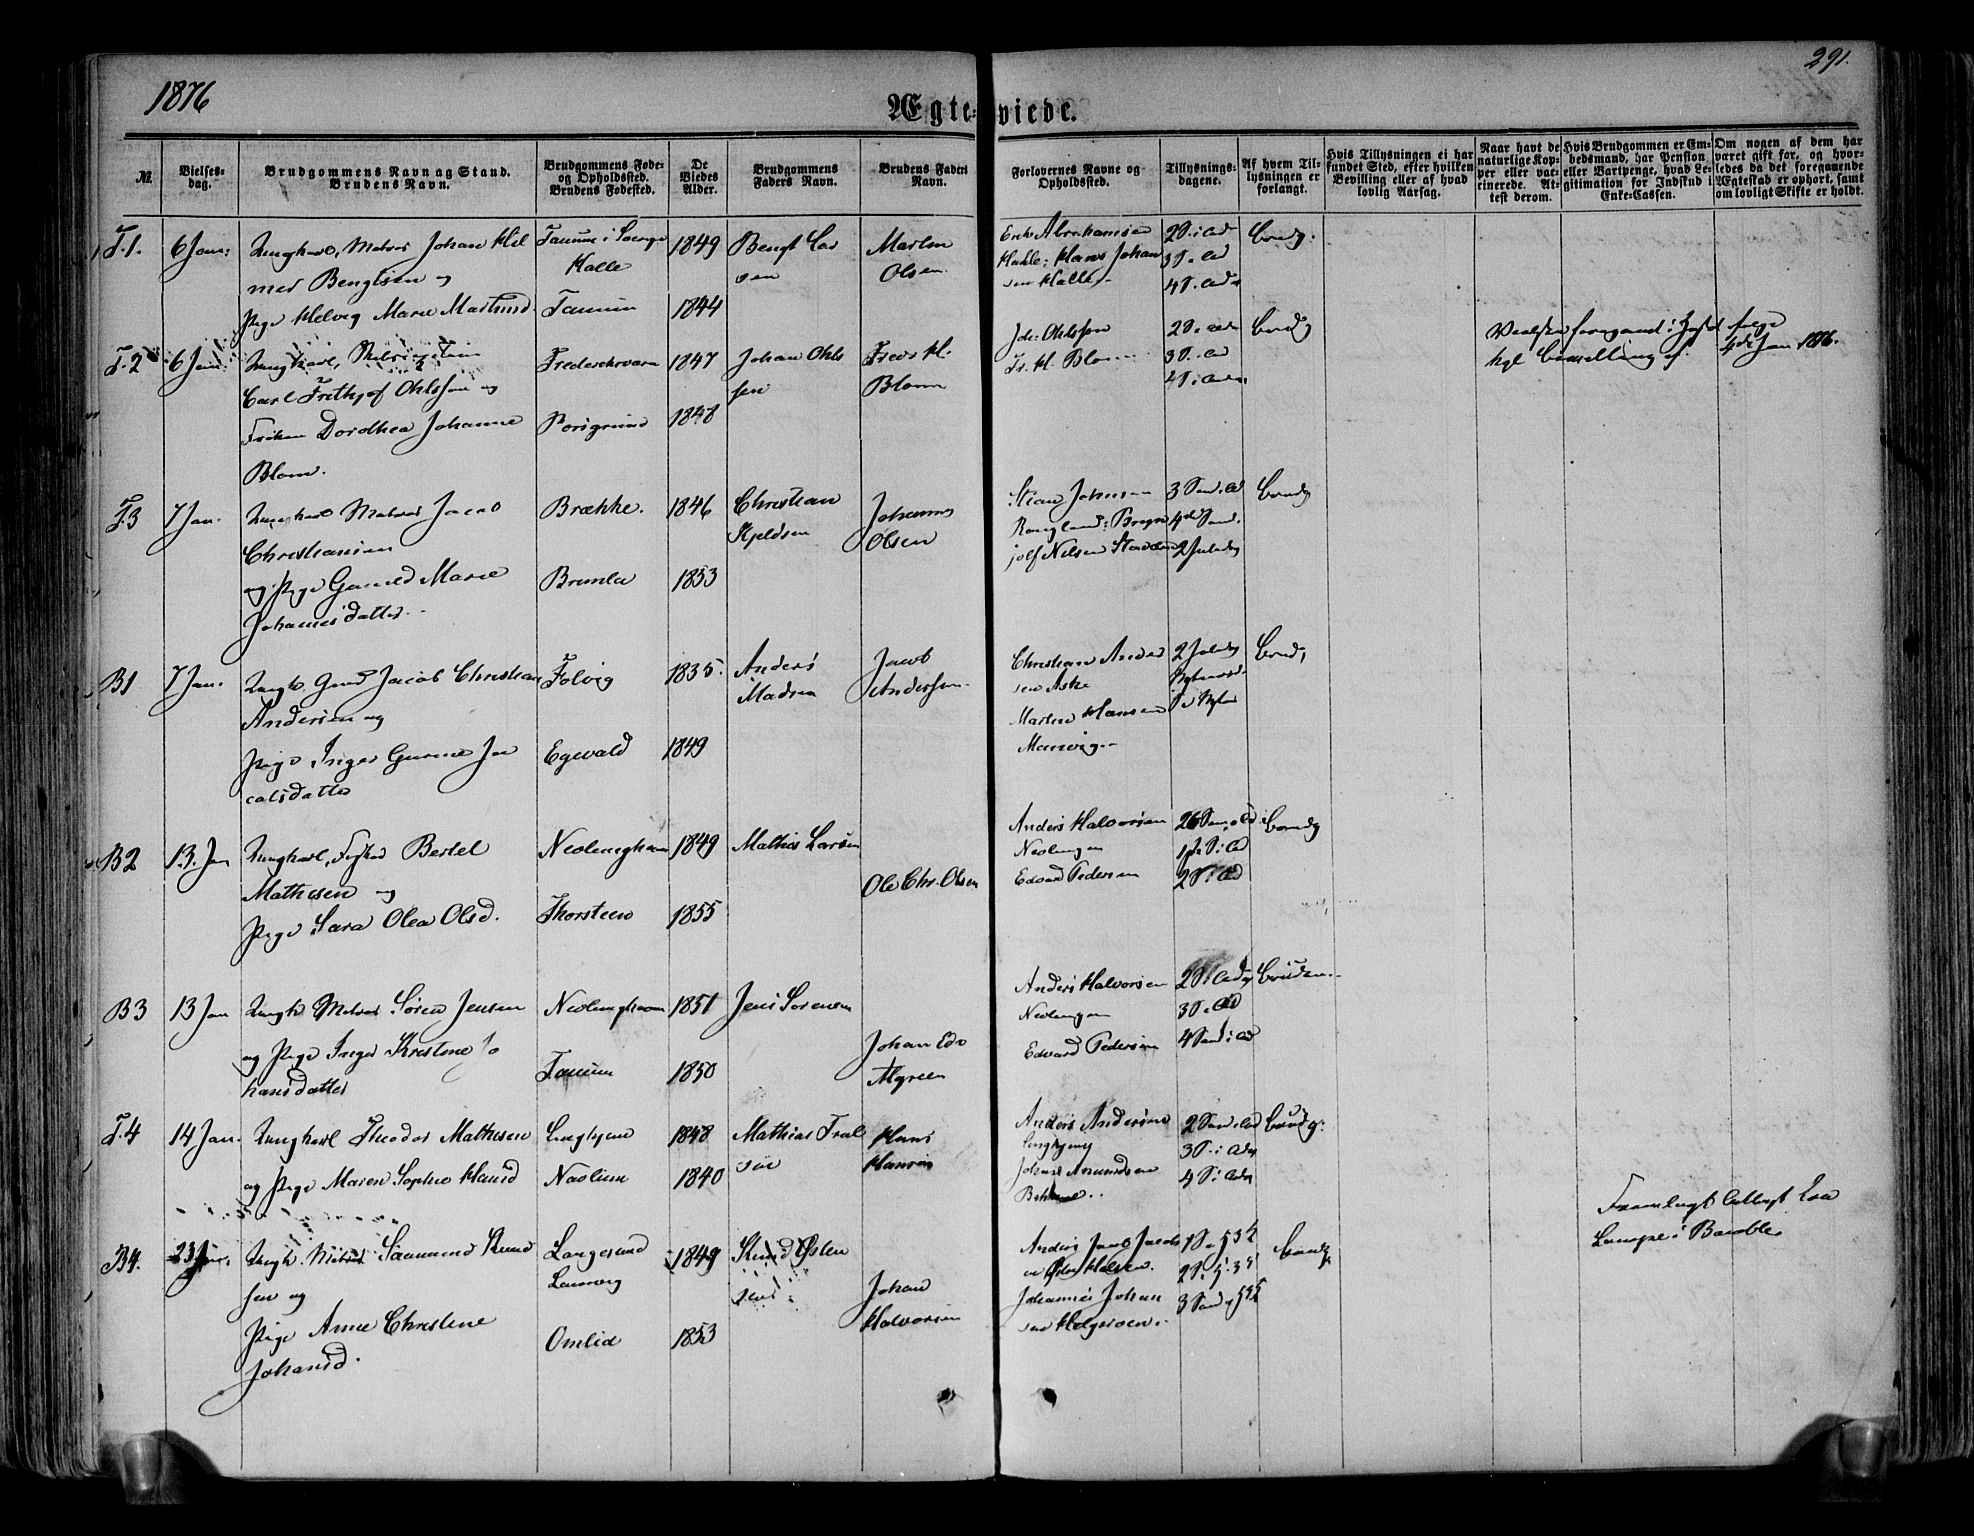 1876
291.
Ægte-viede.
№
Vielses-
dag.
Brudgommens Navn og Stand.
Brudens Navn.
Brudgommens Føde-
og Opholdssted.
Brudens Fødested.
De
Viedes
Alder.
Brudgommens
Faders Navn.
Brudens Faders
Navn.
Forlovernes Navne og
Opholdssted.
Tillysnings-
dagene.
Af hvem Til-
lysningen er
forlangt.
Hvis Tillysningen ei har
fundet Sted, efter hvilken
Bevilling eller af hvad
lovlig Aarsag.
Naar havt de
naturlige Kop-
per eller vac-
cinerede. At-
test derom.
Hvis Brudgommen er Em-
bedsmand, har Pension
eller Vartpenge, hvad Le-
gitimation for Indskud i
Enke-Cassen.
Om nogen af dem har
været gift før, og hvor-
ledes da det foregaaende
Ægteskab er ophørt, samt
om lovligt Skifte er holdt.
T.1.
6 Jan:
Ungkarl, Matros Johan Hil
mer Bengtsen og
Pige Helvig Marie Martinsd.
Tanum i
Halle
Tanum
1849
1844
Bengt Lar
sen
Martin
Olsen
Erik Abrahamsen
Hakle: Hans Johan
sen Halle
2 S. i Ad
3 S. i Ad
4 S. i Adv
Brudg.
T.2
6 Jan
Ungkarl,
Carl Frithjof Ohlsson og
Frøken Dorothea Johanne
Blom.
Frederiksværn
Porsgrund
1847
1848
Johan Ohls
sen
Fredr. H.
Blom
Joh: Ohlsson
Fr. H. Blom
2 S. i Adv
3 S. i Ad
4 S. i Adv
Brudg
Vielsen foregaaet i Huset ifølge
kgl Bevilling af 4de Jan 1876.
T.3
7 Jan.
Ungkarl Matros Jacob
Christiansen
og Pige Gunild Marie
Johannesdatter.
Brække.
Brunla
1846
1853
Christian
Kjeldsen
Johannes
Olsen
Stian Johnsen
Rougland: Bryn
jolf Nilsen
3 Sønd. i Ad
4de Sønd.
2 Juledg
Brudg
B1
7 Jan.
Ungk. Gmd Jacob Christian
Andersen og
Pige Inger Gurine Ja
cobsdatter
Folvig
Egevald
1835.
1849
Anders
Madsen
Jacob
Andersen
Christian Ander
sen Aske
Martin Hansen
Manvig
2 Juledg
Nytaarsd.
S e Nytaar
Brudg
B2
13. Jan
Ungkarl, Fisker Bertel
Mathisen og
Pige Sara Olea Olsd.
Nevlunghavn
Thorsteen
1849
1855
Mathis Larsen
Ole Chr. Olsen
Anders Halvorsen
Nevlungen
Edvard Pedersen
26 Søn. e Ad
1ste S. i Ad
2 S. i Ad
Brudg
B3
13 Jan
Ungk Matros Søren Jensen
og Pige Inger Kristine Jo
hansdatter
Nevlunghavn
Tanum
1851
1850
Jens Sørensen
Johan Edv
Algreen
Anders Halvorsen
Nevlungen
Edvard Pedersen
2 S. i Adv
3 S. i Ad
4 Sønd. i Ad
Bruden
T.4
14 Jan.
Ungkarl Theodor Mathisen
og Pige Maren Sophie Hansd
Naalum
1848
1840
Mathias
Hans
Hansen
Anders Andersen
Johan Amundsen
2 Sønd. i Ad
3 S. i Adv
4 S. i Adv
Brudg.
B4.
23 Jan.
Ungk. Matros Saamund Knud
sen og
Pige Anne Christine
Johansd.
Langesund
Omlid
1849
1853
Knud Østen
sen
Johan
Halvorsen
Anders Jacob Jacobs
en Østre Halsen.
Johannes Johan
sen Helgeroen.
1 S.
2 S.
3 Sønd
Brudg
Fremlagt Attest fra
i Bamble